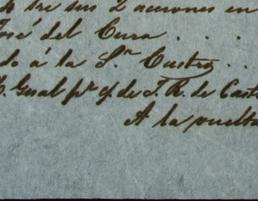 sus 2 acciones en
José del Cura . . .
do á la Sra Castro . .
Gual pr of de J. R. de Cast
A la vuelta